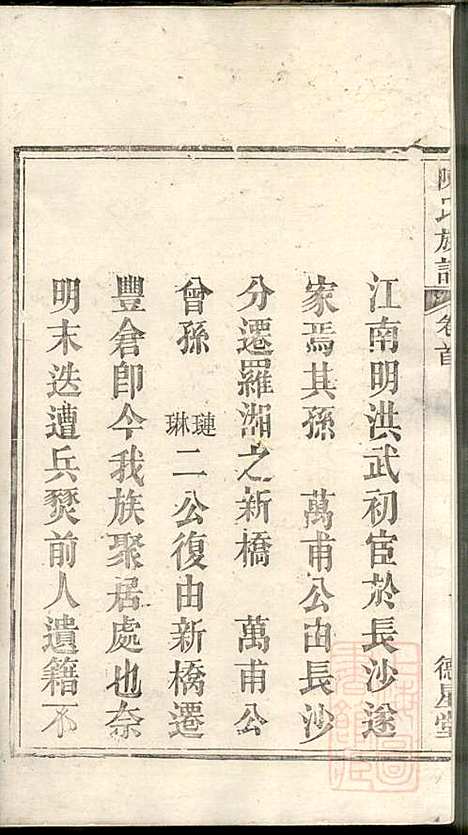 陳氏族譜 卷首 德星堂
江南明洪武初宦於長沙遂
家焉其孫 萬甫公由長沙
分遷羅湘之新橋 萬甫公
曾孫 璉琳二公復由新橋遷
豐倉即今我族聚居處也奈
明末迭遭兵燹前人遺籍不